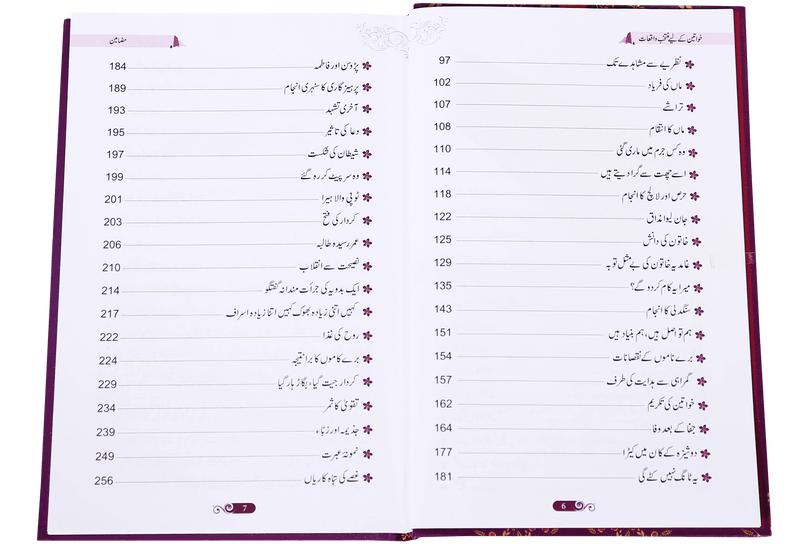 خواتین کے لیے منتخب واقعات
نظریے سے مشاہدے تک 97
ماں کی فریاد 102
تراشے 107
ماں کا انتقام 108
وہ کس جرم میں ماری گئی 110
اسے چھت سے گرا دیتے ہیں 114
حرص اور لالچ کا انجام 118
جان لیوا مذاق 122
خاتون کی دانش 125
غامدیہ خاتون کی بے مثل توبہ 129
میرا یہ کام کر دو گے؟ 135
سنگدلی کا انجام 143
ہم تو اصل ہیں، ہم بنیاد ہیں 151
برے ناموں کے نقصانات 154
گمراہی سے ہدایت کی طرف 157
خواتین کی تکریم 162
جفا کے بعد وفا 164
دوشیزہ کے کان میں کیڑا 177
یہ ٹانگ نہیں کٹے گی 181
6
مضامین
پڑوسن اور فاطمہ 184
پرہیزگاری کا سنہری انجام 189
آخری تشہد 193
دعا کی تاثیر 195
شیطان کی شکست 197
وہ سر پیٹ کر رہ گئے 199
ٹوپی والا ہیرا 201
کردار کی فتح 203
عمر رسیدہ طالبہ 206
نصیحت سے انقلاب 210
ایک بدویہ کی جرأت مندانہ گفتگو 214
کہیں اتنی زیادہ بھوک کہیں اتنا زیادہ اسراف 217
روح کی غذا 222
برے کاموں کا برا نتیجہ 224
کردار جیت گیا، بگاڑ ہار گیا 229
تقویٰ کا ثمر 234
جذیمہ اور زبّاء 239
نمونۂ عبرت 249
غصے کی تباہ کاریاں 256
7